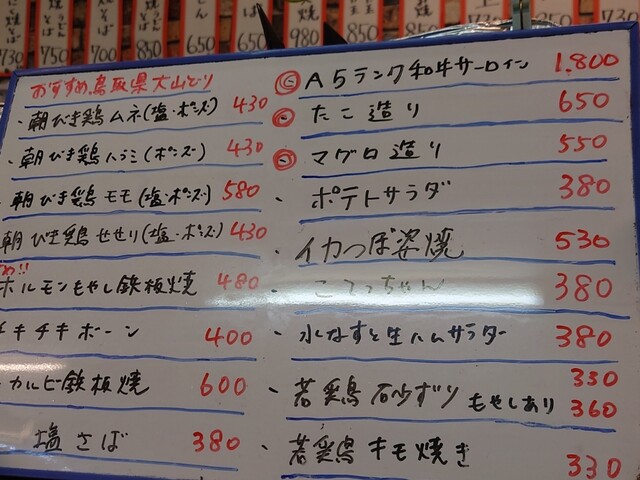 おすすめ鳥取県大山どり
・朝びき鶏ムネ(塩・ポンズ) 430
・朝びき鶏ハラミ(ポンズ) 430
朝びき鶏モモ(塩・ポンズ) 580
朝びき鶏せせり(塩・ポンズ) 430
ホルモンもやし鉄板焼 480
チキチキボーン 400
カルビー鉄板焼 600
塩さば 380
A5ランク和牛サーロイン 1,800
たこ造り 650
マグロ造り 550
・ポテトサラダ 380
・イカつぽ姿焼 530
・こてっちゃん 380
・水なすと生ハムサラダー 380
・若鶏砂ずり 330
もやしあり 360
・若鶏キモ焼き 330
730
750
700
850
650
650
980
850